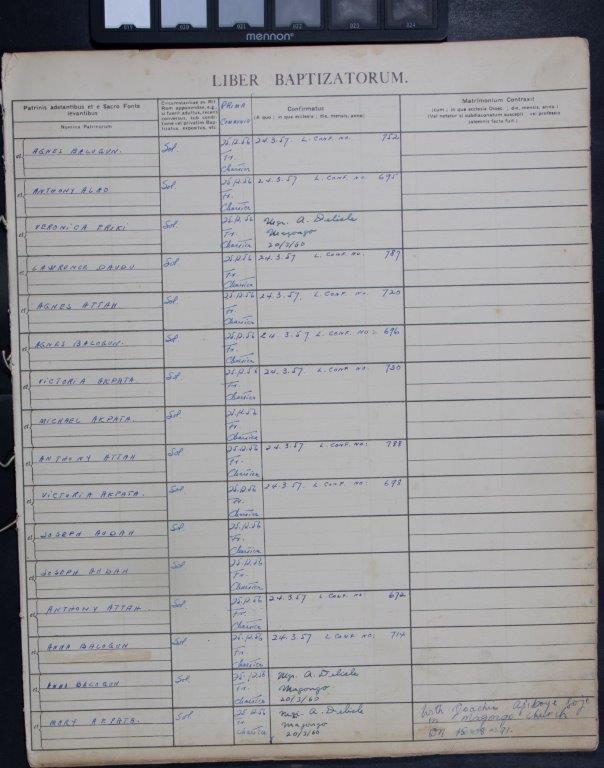 019 020 021 022 023 024
mennon
LIBER BAPTIZATORUM.
Patrinis adstantibus et e Sacro Fonte levantibus
Nomina Patrinorum
PRIMA COMMUNIO
Confirmatus
(A quo; in qua ecclesia; die, mensis, anno)
Matrimonium Contraxit
(cum; in qua ecclesia Dioec.; die, mensis, anno)
(Vel notetur si subdiaconatum suscepit vel professio solemnis facta fuit.)
et AGNES BALOGUN. Sol. 25.12.56 Fr. 24.3.57. L. CONF. NO. 752
et ANTHONY ALAO Sol. 25.12.56 Fr. 24.3.57 L. CONF. NO. 695
et VERONICA Sol. 25.12.56 Fr. Mgr. A. Delisle Magongo 20/3/60
et LAWRENCE DAUDU Sol. 25.12.56 Fr. 24.3.57 L. CONF. NO: 787
et AGNES ATTAH Sol. 25.12.56 Fr. 24.3.57. L. CONF. NO: 720
et AGNES BALOGUN. Sol. 25.12.56 Fr. 24.3.57. L. CONF. NO: 696
et VICTORIA AKPATA. Sol. 25.12.56 Fr. 24.3.57. L. CONF NO: 730
et MICHAEL AKPATA. Sol 25.12.56 Fr.
et ANTHONY ATTAH Sol. 25.12.56 Fr. 24.3.57 L. CONF. NO: 788
et VICTORIA AKPATA. Sol. 25.12.56 Fr. 24.3.57. L. CONF. NO: 698
et JOSEPH AUDAH Sol. 25.12.56 Fr.
et JOSEPH AUDAH Sol. 25.12.56 Fr.
et ANTHONY ATTAH. Sol. 25.12.56 Fr. 24.3.57 L. CONF. NO: 672
et ANNA BALOGUN Sol. 25.12.56 Fr. 24.3.57 L CONF NO: 714
et ANNA BALOGUN Sol. 25.12.56 Fr. Mgr. A. Delisle Magongo 20/3/60
et MARY AKPATA. Sol 25.12.56 Fr Mgr. A. Delisle Magongo 20/3/60 with Joachim
in Magongo Church
on